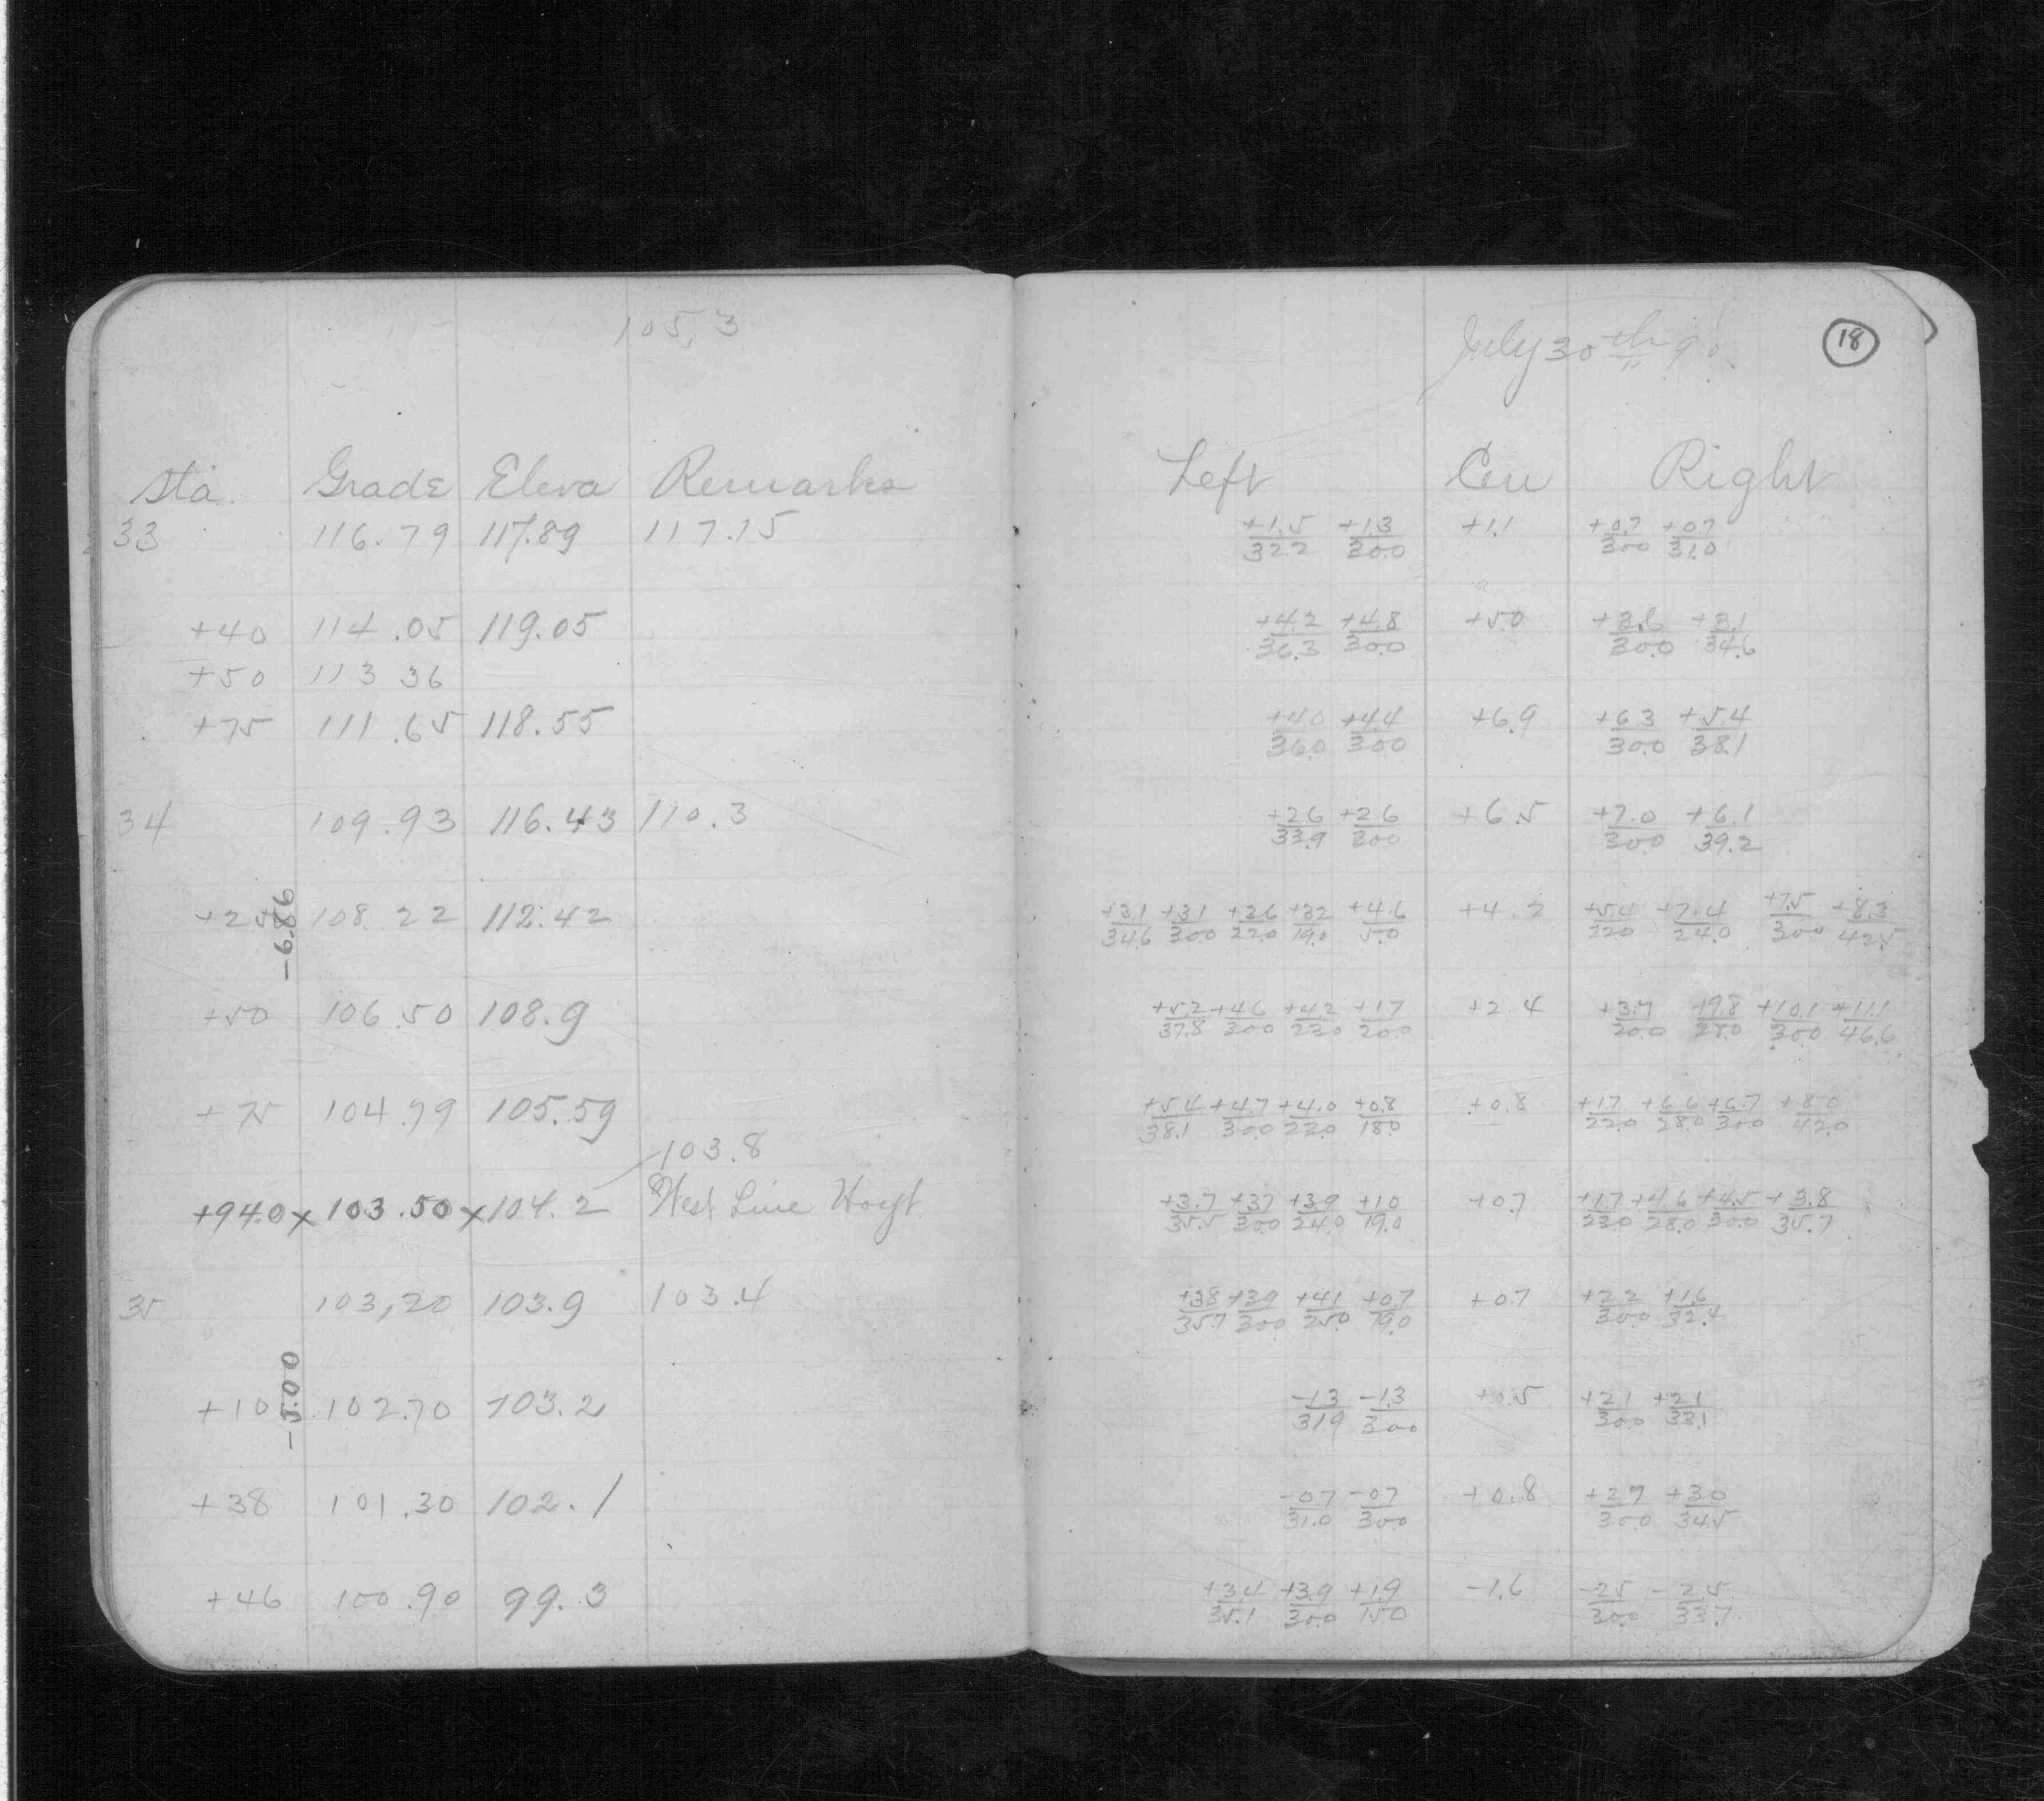 105,3
Sta. Grade Eleva Remarks
33 116.79 117.89 117.15
+40 114.05 119.05
+50 113 36
+75 111.65 118.55
34 109.93 116.43 110.3
-6.86
+25 108.22 112.42
+50 106.50 108.9
+75 104.79 105.59
103.8
+94.0 x 103.50 x 104.2 West Line Hoyt
35 103,20 103.9 103.4
-5.00
+10 102.70 103.2
+38 101.30 102.1
+46 100.90 99.3
July 30th 18
Left Cen Right
+1.5/32.2 +1.3/30.0 +1.1 +0.7/30.0 +0.7/31.0
+4.2/36.3 +4.8/30.0 +5.0 +3.6/30.0 +3.1/34.6
+4.0/36.0 +4.4/30.0 +6.9 +6.3/30.0 +5.4/38.1
+2.6/33.9 +2.6/30.0 +6.5 +7.0/30.0 +6.1/39.2
+3.1/34.6 +3.1/30.0 +3.6/22.0 +3.2/19.0 +4.6/5.0 +4.2 +5.4/22.0 +7.4/24.0 +7.5/30.0 +8.3/42.5
+5.2/37.8 +4.6/30.0 +4.2/23.0 +1.7/20.0 +2.4 +3.7/20.0 +9.8/28.0 +10.1/30.0 +11.1/46.6
+5.4/38.1 +4.7/30.0 +4.0/22.0 +0.8/18.0 +0.8 +1.7/22.0 +6.6/28.0 +6.7/30.0 +8.0/42.0
+3.7/35.5 +3.7/30.0 +3.9/24.0 +1.0/19.0 +0.7 +1.7/23.0 +4.6/28.0 +4.5/30.0 +3.8/35.7
+3.8/35.7 +3.9/30.0 +4.1/25.0 +0.7/19.0 +0.7 +2.2/30.0 +1.6/32.4
-1.3/31.9 -1.3/30.0 +0.5 +2.1/30.0 +2.1/33.1
-0.7/31.0 -0.7/30.0 +0.8 +2.7/30.0 +3.0/34.5
+3.4/35.1 +3.9/30.0 +1.9/15.0 -1.6 -2.5/30.0 -2.5/33.7